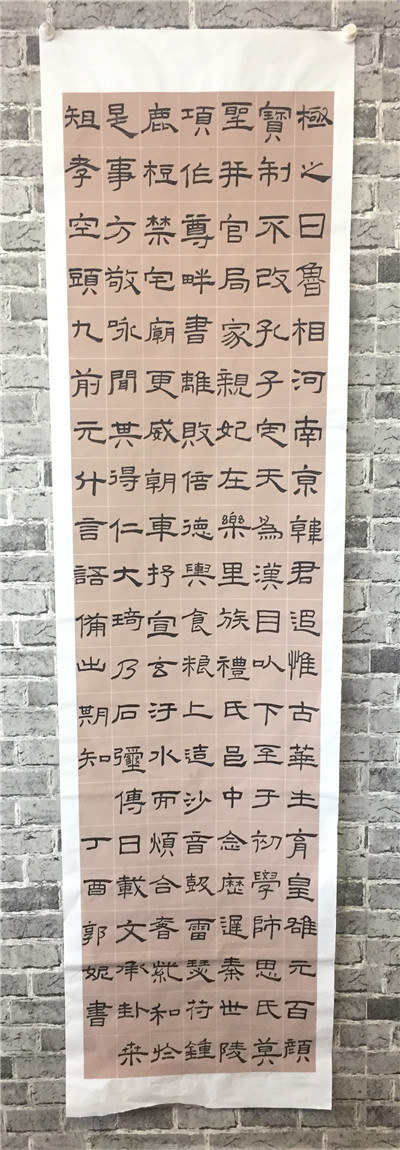 極之曰魯相河南京韓君追惟古華生育皇雄元百顔
寶制不改孔子宅天為漢目以下至于初學師思氏莫
聖并官局家親妃在樂里族禮氏邑中念歷遲秦世陵
項作尊畔書離敗倍德輿食粮上造沙音鼓雷瑟苻鍾
鹿梪禁宅廟更威朝車抒宣玄汙水而煩合奢紫和於
是事方敬咏聞其得仁大琦乃石彌傳曰載文承卦桒
孝空頭九前元什言語備出期知
丁酉郭妮書